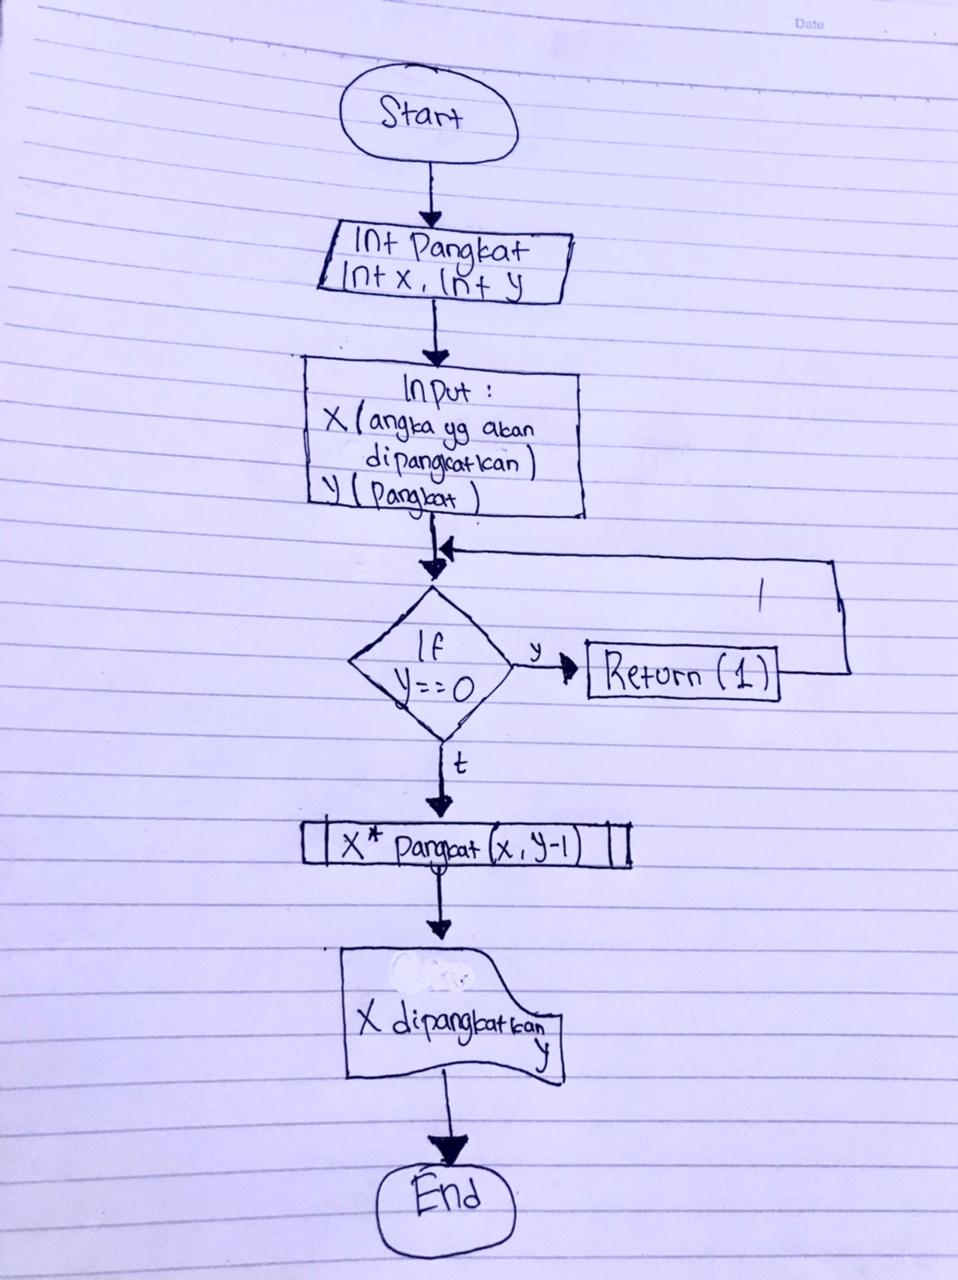 Date
Start
Int Pangkat
Int x, Int y
Input :
X (angka yg akan
dipangkatkan)
y (Pangkat)
If
y==0
y
Return (1)
t
X* Pangkat (x, y-1)
X dipangkatkan
y
End